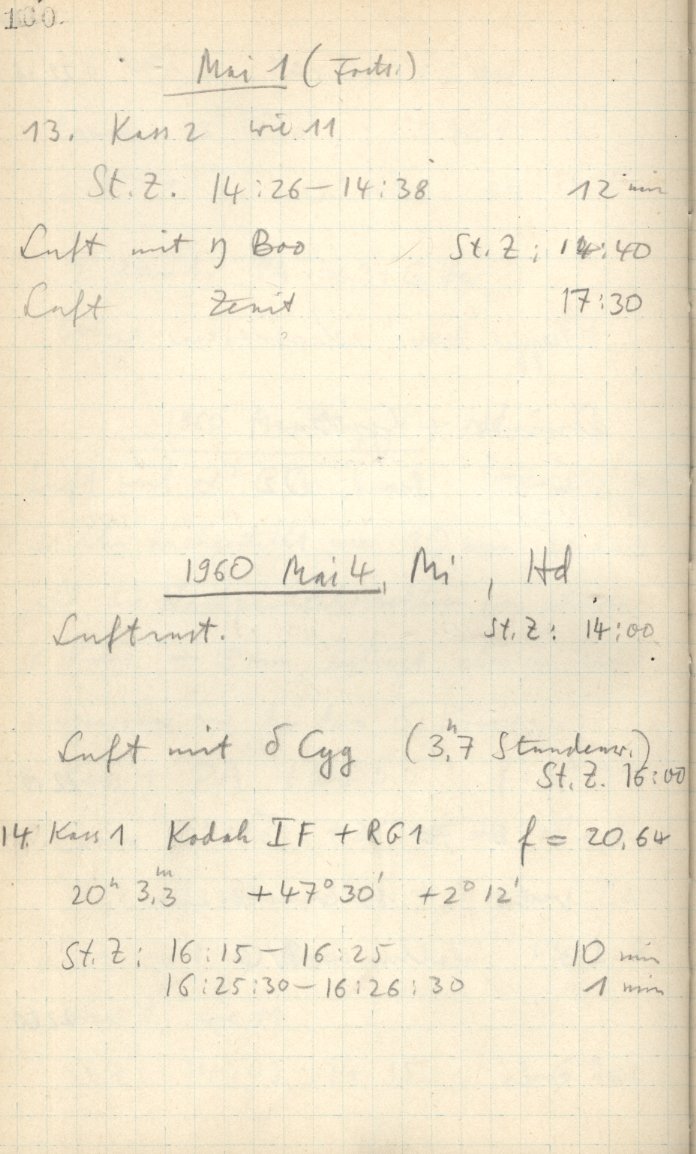 100.
Mai 1 (Forts.)
13. Kass 2 wie 11
St.Z. 14:26 – 14:38 12 min
Luft mit η Boo St.Z: 14:40
Luft Zenit 17:30
1960 Mai 4, Mi, Hd
St.Z: 14:00
Luft mit δ Cyg (3,ʰ7 Stundenw.)
St.Z. 16:00
14. Kass 1 Kodak IF + RG1 f = 20,64
20ʰ 3,ᵐ3 +47°30' +2°12'
St.Z: 16:15 – 16:25 10 min
16:25:30 – 16:26:30 1 min